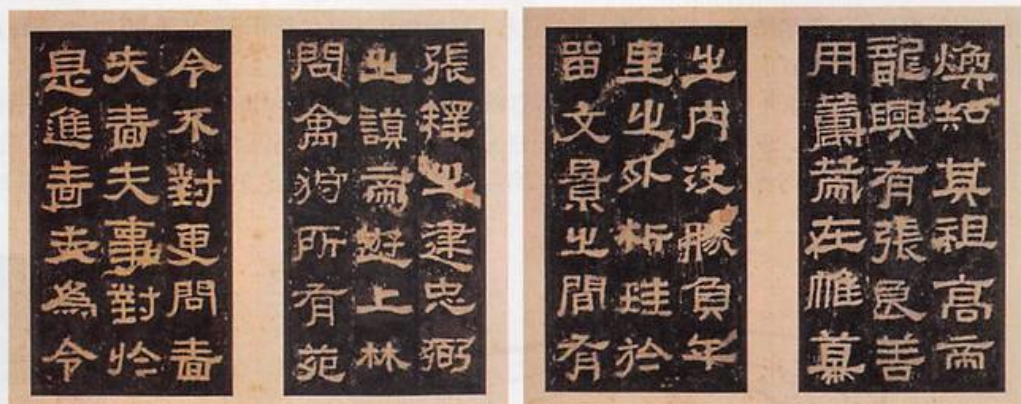 煥知其祖高帝
龍興有張良善
用籌策在帷幕
之内決勝負千
里之外析珪於
留文景之間有
張釋之建忠弼
之謨帝遊上林
問禽狩所有苑
令不對更問嗇
夫嗇夫事對於
是進嗇夫為令